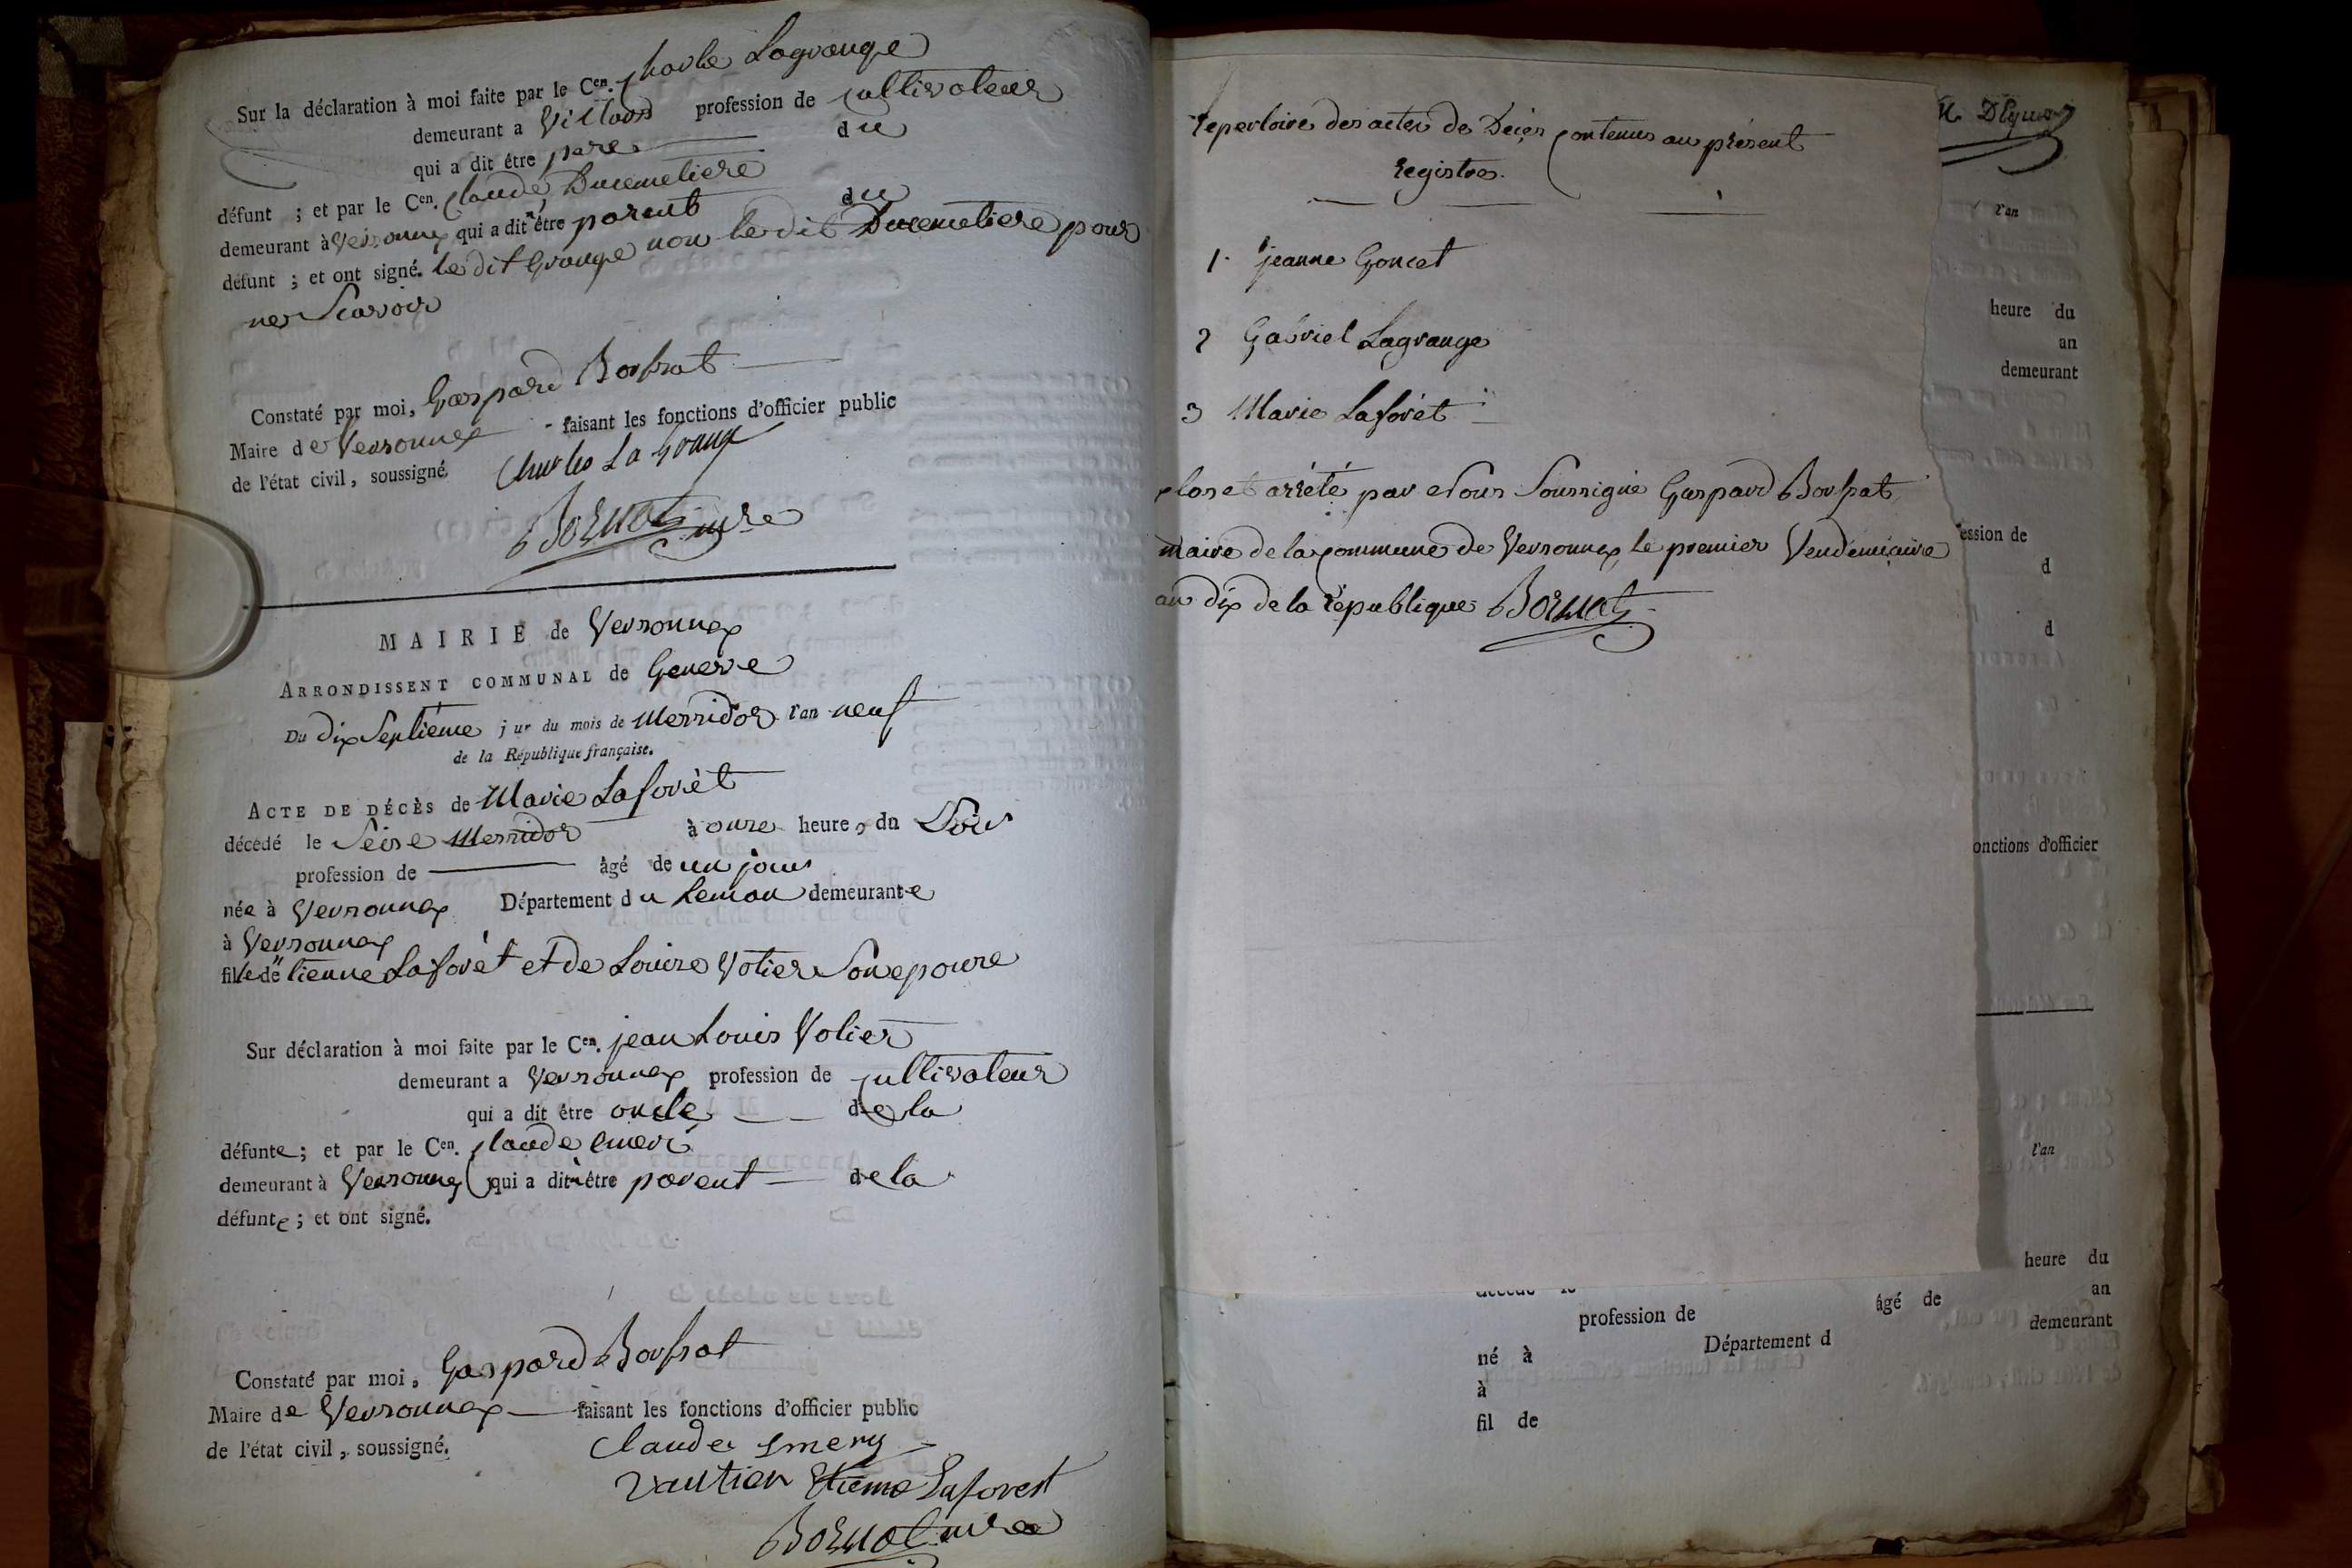 Sur la déclaration à moi faite par le Cen. Charle Lagrange
demeurant a Villard profession de Cultivateur
qui a dit être pere du
défunt ; et par le Cen. Claude Ducemetiere
demeurant à Versonnex qui a dit être parent du
défunt ; et ont signé. le dit Grange non le dit Ducemetiere pour
ne Scavoir
Constaté par moi, Gaspard
Maire de Versonnex faisant les fonctions d'officier public
de l'état civil, soussigné.
Charles La Grange
mre
MAIRIE de Versonnex
ARRONDISSENT COMMUNAL de Geneve
Du dix Septieme j ur du mois de Messidor l'an neuf
de la République française.
ACTE DE DÉCÈS de Marie Laforèt
décédé le Seise Messidor à onze heures du Soir
profession de âgé de un jour
née à Versonnex Département du Leman demeurante
à Versonnex
fille de Etienne Laforèt et de Louise Votier Son epouse
Sur déclaration à moi faite par le Cen. jean Louis Votier
demeurant a Versonnex profession de Cultivateur
qui a dit être oncle de la
défunte ; et par le Cen. Claude Emeri
demeurant à Versonnex qui a dit être parent de la
défunte ; et ont signé.
Constaté par moi, Gaspard
Maire de Versonnex faisant les fonctions d'officier public
de l'état civil, soussigné.
Claude Emery
Vautier Etienne Laforest
mre
repertoire des actes de Decès Contenus au présent
registre.
1. jeanne Goncet
2 Gabriel Lagrange
3 Marie Laforèt
Clos et arrété par Nous Soussigné Gaspard
maire de la Commune de Versonnex le premier Vendemiaire
an dix de la république
l'an
heure du
an
demeurant
ession de
d
d
onctions d'officier
l'an
heure du
an
profession de âgé de
demeurant
né à Département d
à
fil de